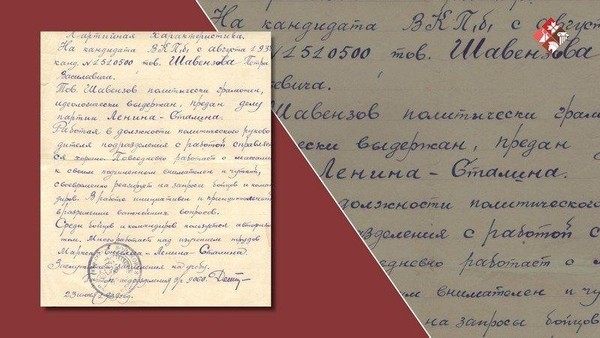 Партийная Характеристика.
На кандидата ВКП(б) с августа 193
канд. № 1510500 тов. Шавензова Петра
Василевича.
Тов. Шавензов политически грамотен,
идеологически выдержан, предан делу
партии Ленина-Сталина.
Работая в должности политического руково-
дителя подразделения с работой справляет-
ся хорошо. Повседневно работает с массами
к своим подчиненным внимателен и чуткий,
своевременно реагирует на запросы бойцов и коман-
диров. В работе инициативен и
разрешении важнейших вопросов.
Среди бойцов и командиров пользуется авторите-
том. Много работает над изучением трудов
Маркса-Энгельса-Ленина-Сталина.
23 июня
На кандидата ВКП(б) с август
1510500 тов. Шавензова
евича.
Шавензов политически грам
чески выдержан, предан
Ленина-Сталина.
должности политического
разделения с работой с
седневно работает с м
м внимателен и чу
на запросы бойцов